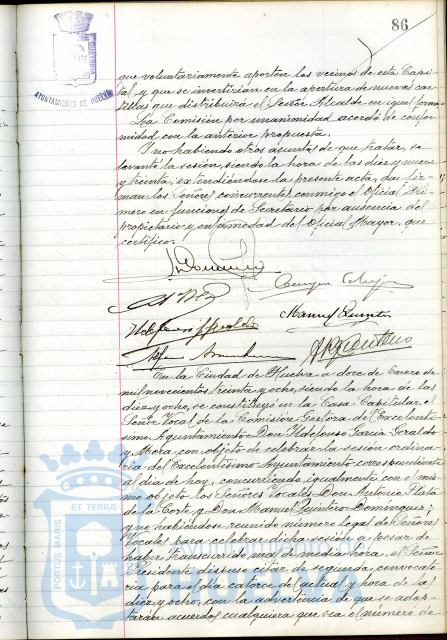 86
AYUNTAMIENTO DE HUELVA
que voluntariamente aporten los vecinos de esta Capi-
tal, y que se invertirían en la apertura de nuevas car-
tillas que distribuirá el Señor Alcalde en igual forma.
La Comisión por unanimidad acordó de confor-
midad con la anterior propuesta.
Y no habiendo otros asuntos de que tratar, se
levantó la sesión, siendo la hora de las diez y nueve
y treinta, extendiéndose la presente acta, que fir-
man los Señores concurrentes conmigo el Oficial Pri-
mero en funciones de Secretario por ausencia del
propietario y enfermedad del Oficial Mayor, que
certifico.
Manuel Quintero
En la Ciudad de Huelva a doce de Enero de
mil novecientos treinta y ocho, siendo la hora de las
diez y ocho, se constituyó en la Casa Capitular el
Señor Vocal de la Comisión Gestora del Excelentí-
simo Ayuntamiento Don Ildefonso García Geraldo
y Mora con objeto de celebrar la sesión ordina-
ria del Excelentísimo Ayuntamiento correspondiente
al día de hoy, concurriendo igualmente con el mis-
mo objeto los Señores Vocales Don Antonio Plata
de la Corte, y Don Manuel Quintero Domínguez;
y no habiéndose reunido número legal de Señores
Vocales para celebrar dicha sesión a pesar de
haber transcurrido mas de media hora, el Señor
Presidente dispuso citar de segunda convocato-
ria para el día catorce del actual y hora de las
diez y ocho, con la advertencia de que se adop-
tarán acuerdos cualquiera que sea el número de
PORTUS MARIS ET TERRAE